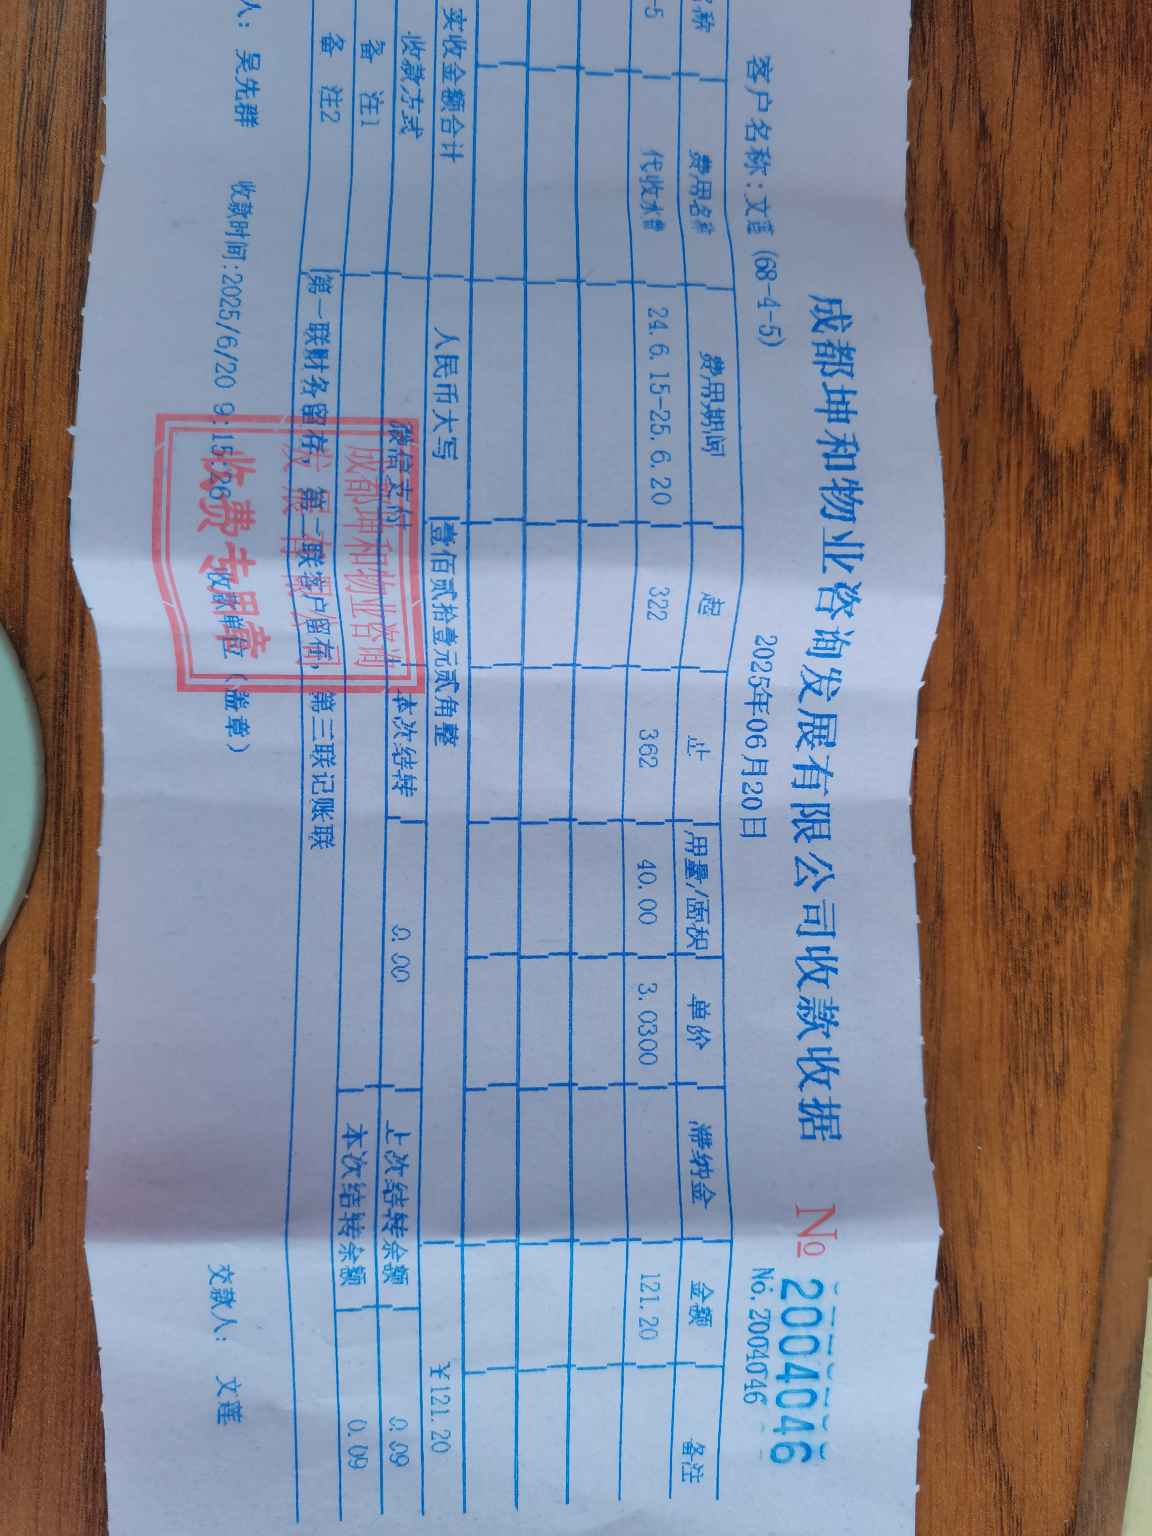 成都坤和物业咨询发展有限公司收款收据 № 2004046
2025年06月20日 No.2004046
客户名称:文莲 (68-4-5)
名称 费用名称 费用期间 起 止 用量/面积 单价 滞纳金 金额 备注
-5 代收水费 24.6.15-25.6.20 322 362 40.00 3.0300 121.20
实收金额合计 人民币大写 壹佰贰拾壹元贰角整 ¥121.20
收款方式 微信支付 本次结转 0.00 上次结转余额 0.09
备 注1 本次结转余额 0.09
备 注2
第一联财务留存, 第二联客户留存, 第三联记账联
人: 吴先群 收款时间:2025/6/20 9:15:26 收款单位(盖章) 交款人: 文莲
成都坤和物业咨询
发展有限公司
收费专用章